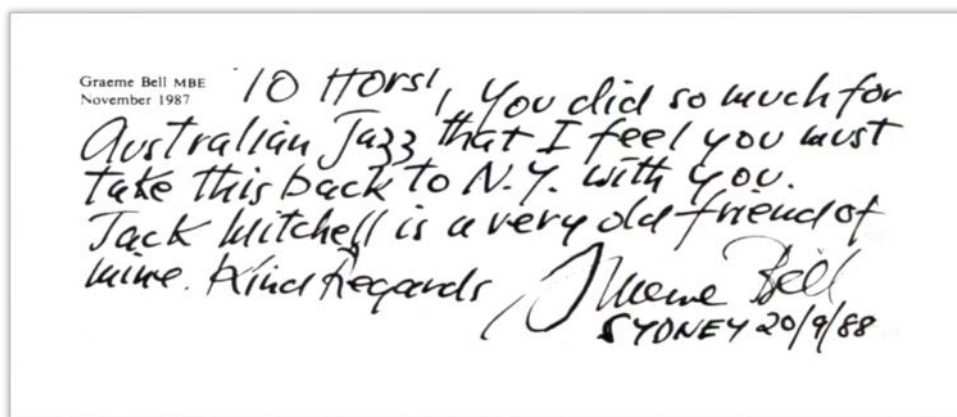 Graeme Bell MBE
November 1987
TO HORST, you did so much for
Australian Jazz that I feel you must
take this back to N.Y. with you.
Jack Mitchell is a very old friend of
mine. Kind Regards Graeme Bell
SYDNEY 20/9/88